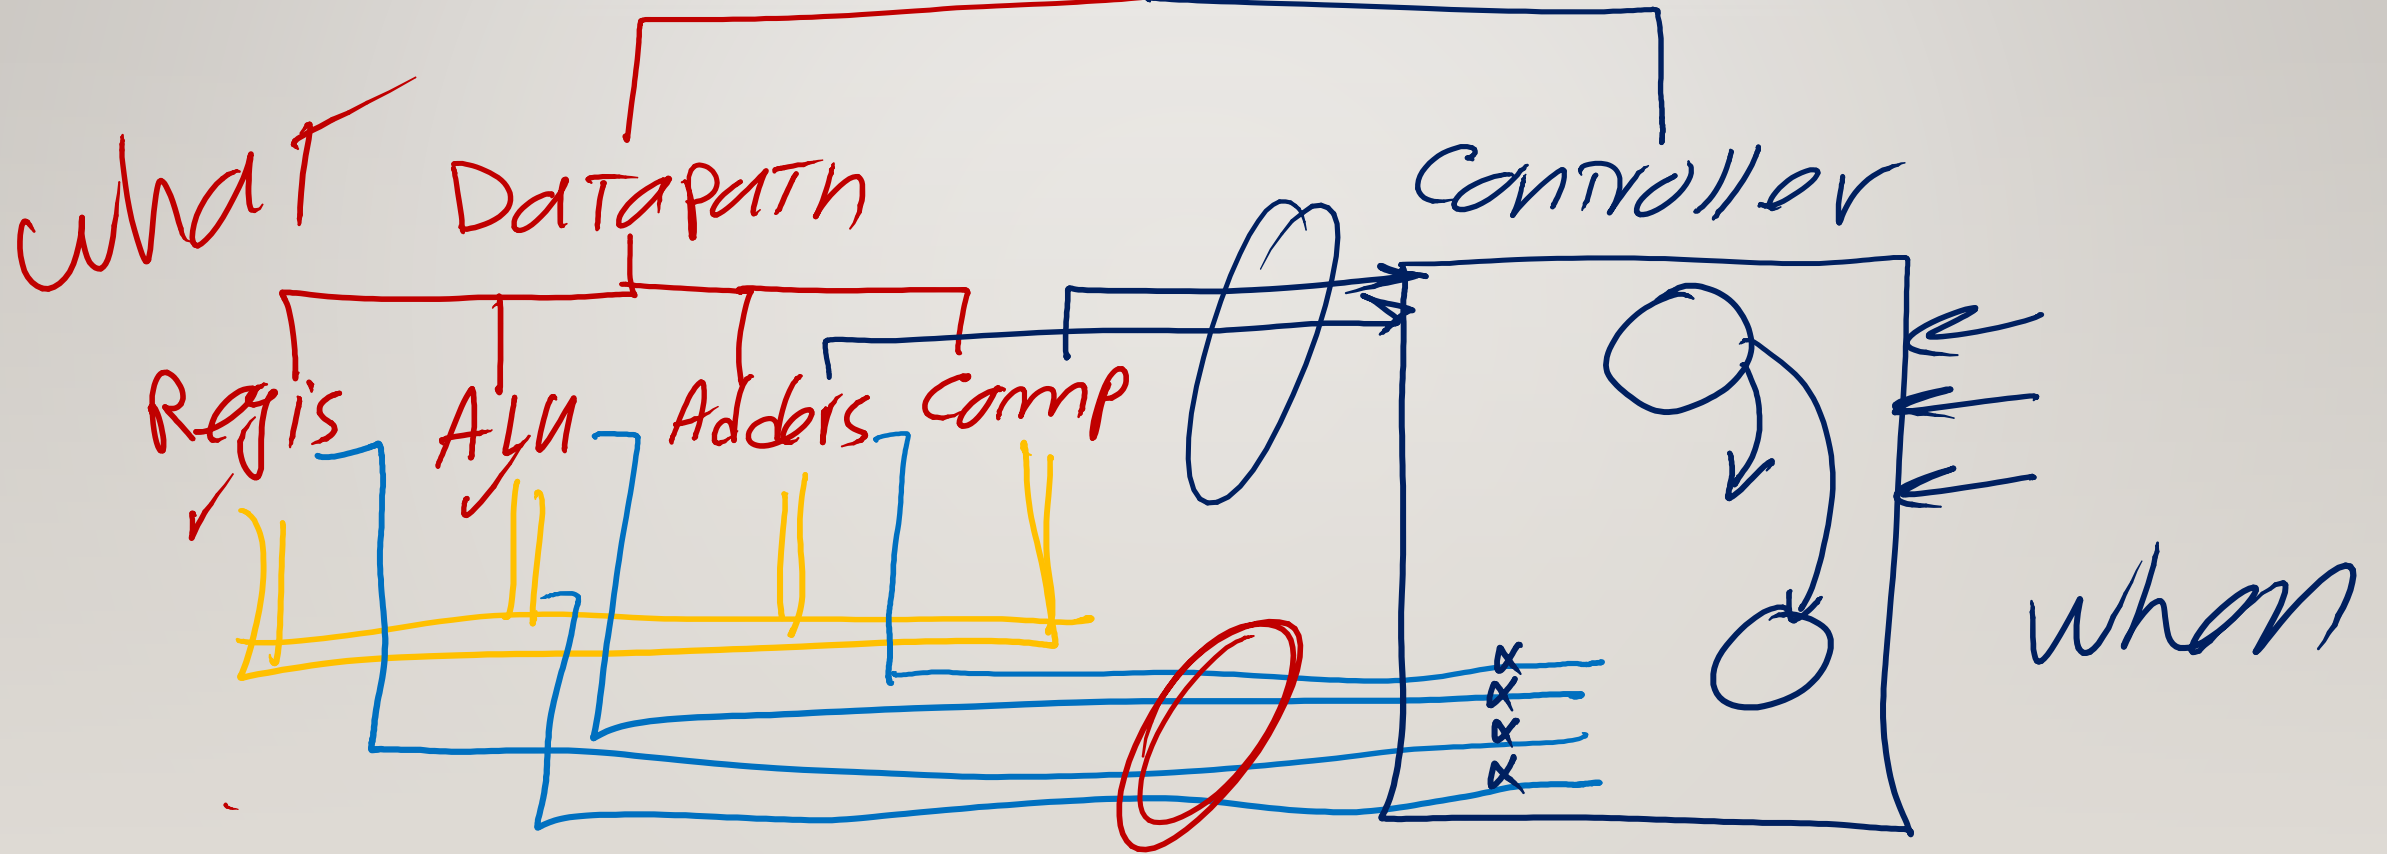 what
Datapath
Controller
Regis ALU Adders Comp
when